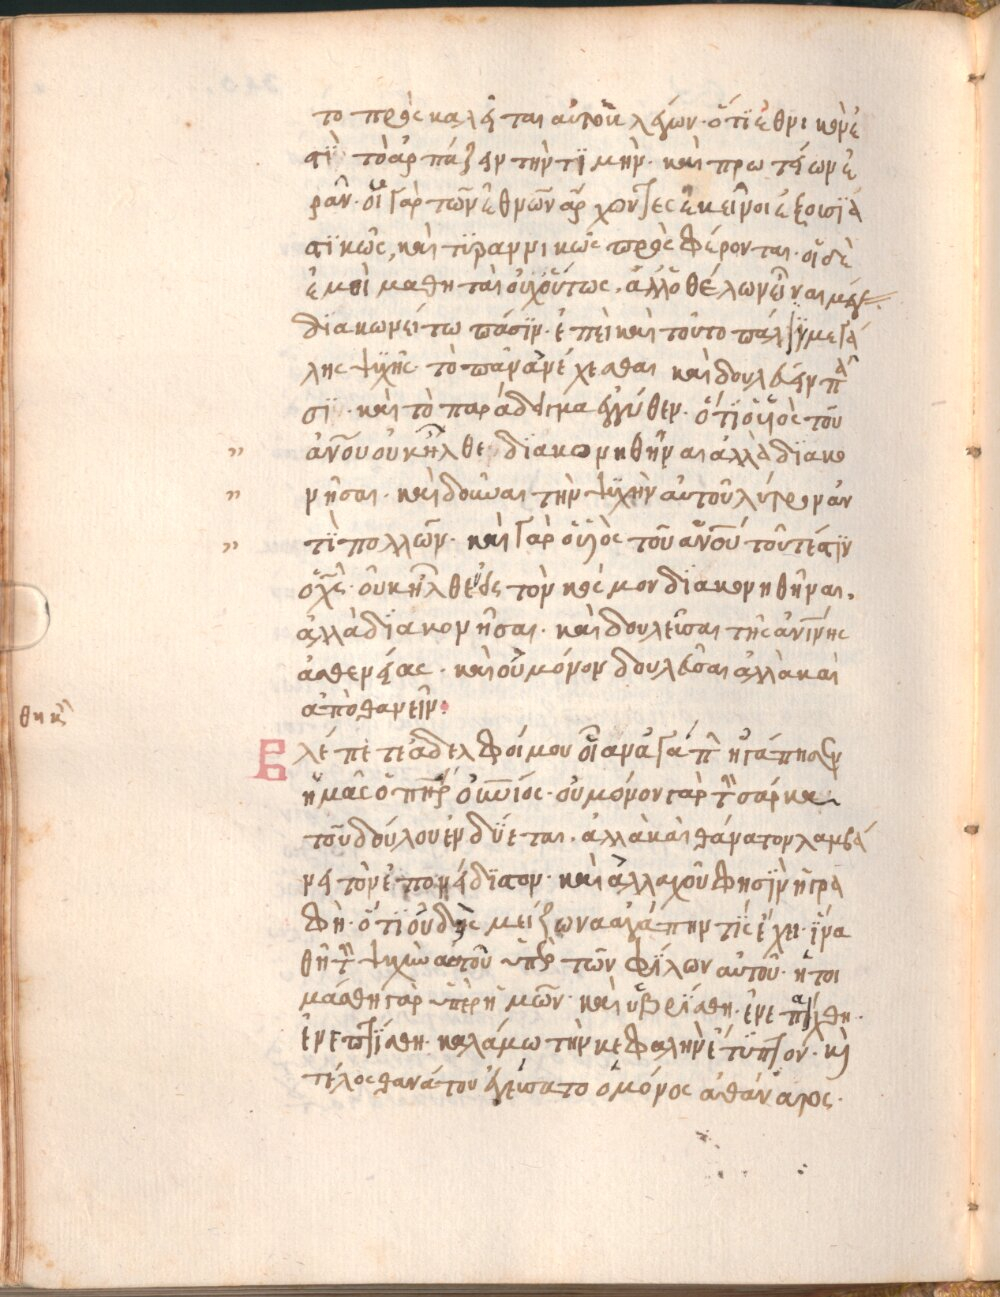 το προσκαλεῖται αὐτοὺς λέγων· ὅτι ἐθνικόν ἐ
στὶ τὸ ἁρπάζειν τὴν τιμὴν· καὶ πρωτείων ἐ
ρᾶν· οἱ γὰρ τῶν ἐθνῶν ἄρχοντες ἐκεῖνοι ἐξουσια
στικῶς, καὶ τυραννικῶς προσφέρονται· οἱ δὲ
ἐμοὶ μαθηταὶ οὐχ οὕτως. ἀλλ' ὁ θέλων εἶναι μέγας
διακωνείτω πᾶσιν· ἐπεὶ καὶ τοῦτο πάλιν μεγά
λης ψυχῆς· τὸ πᾶν ἀνέχεσθαι καὶ δουλεύειν πᾶ
σι· καὶ τὸ παράδειγμα ἐγγύθεν· ὅτι ὁ υἱὸς τοῦ
" ἀνου οὐκ ἦλθε διακωνηθῆναι ἀλλὰ διακο
" νῆσαι· καὶ δοῦναι τὴν ψυχὴν αὐτοῦ λύτρον ἀν
" τὶ πολλῶν· καὶ γὰρ ὁ υἱὸς τοῦ ἀνου τουτέστιν
ὁ χς· οὐκ ἦλθεν εἰς τὸν κόσμον διακονηθῆναι.
ἀλλὰ διακονῆσαι· καὶ δουλεῦσαι τῆς ἀνίνης
ἀσθενείας· καὶ οὐ μόνον δουλεῦσαι ἀλλὰ καὶ
ἀποθανεῖν·
θηκ
Βλέπετε ἀδελφοί μου οἵαν ἀγάπην ἠγάπησεν
ἡμᾶς ὁ πηρ ὁ οὐνιος· οὐ μόνον γὰρ τὴν σάρκα
τοῦ δούλου ἐνδύεται. ἀλλὰ καὶ θάνατον λαμβά
νει τὸν ἐπονείδιστον· καὶ ἀλλαχοῦ φησὶν ἡ γρα
φὴ· ὅτι οὐδεὶς μείζωνα ἀγάπην τίς ἔχει· ἵνα
θῇ τὴν ψυχὴν αὐτοῦ ὑπὲρ τῶν φίλων αὐτοῦ· ἡτοι
μάσθη γὰρ ὑπὲρ ἡμῶν· καὶ ὑβρίσθη· ἐνεπαίχθη·
ἐνεπτύσθη· καλάμω τὴν κεφαλὴν ἐτύπτον· κὶ
τέλος θανάτου ἐγεύσατο ὁ μόνος ἀθάνατος·